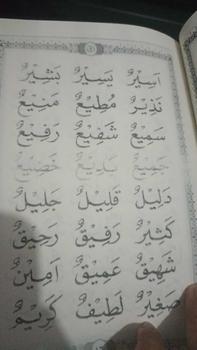 اَسِيْرٌ يَسِيْرٌ بَشِيْرٌ
نَذِيْرٌ مُطِيْعٌ مَنِيْعٌ
سَمِيْعٌ شَفِيْعٌ رَفِيْعٌ
جَمِيْعٌ بَدِيْعٌ خَضِيْعٌ
دَلِيْلٌ قَلِيْلٌ جَلِيْلٌ
كَثِيْرٌ رَفِيْقٌ رَحِيْقٌ
شَهِيْقٌ عَمِيْقٌ اَمِيْنٌ
صَغِيْرٌ لَطِيْفٌ كَرِيْمٌ